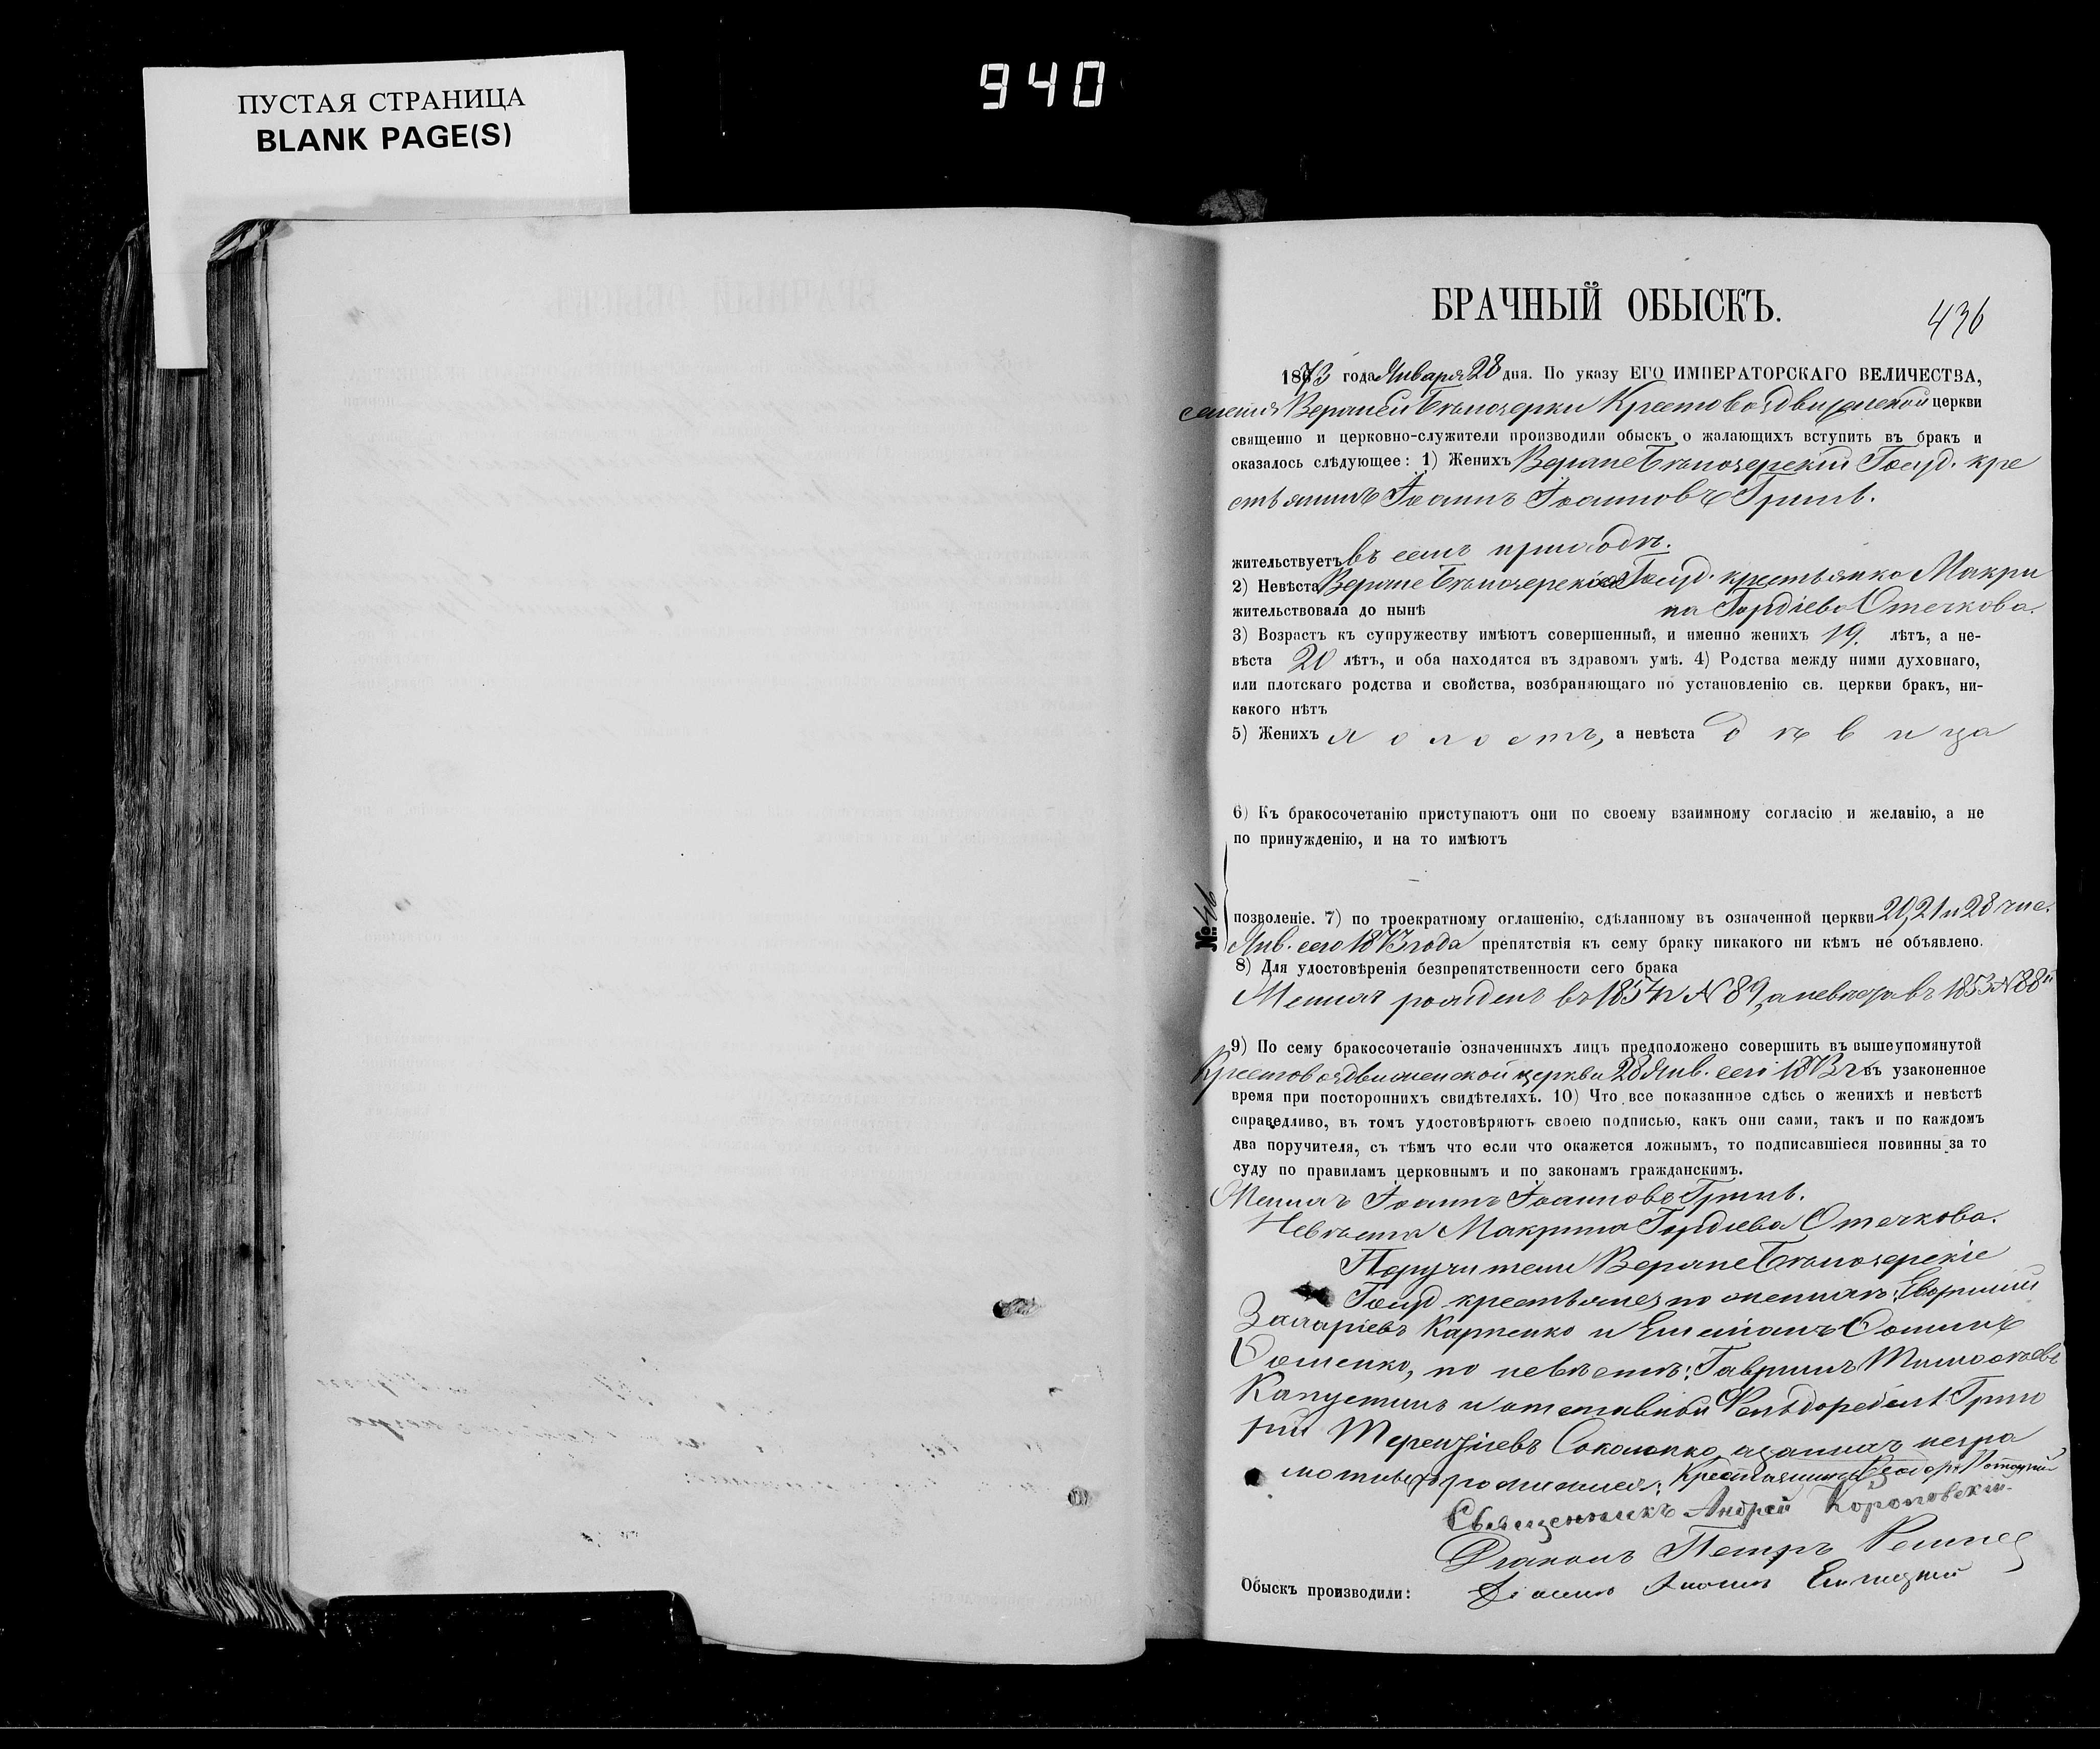 ПУСТАЯ СТРАНИЦА
BLANK PAGE(S)
940
БРАЧНЫЙ ОБЫСКЪ.
436
1873 года Января 28 дня. По указу ЕГО ИМПЕРАТОРСКАГО ВЕЛИЧЕСТВА,
селенія Верхней Бѣлозерки Крестовоздвиженской церкви
священно и церковно-служители производили обыскъ о жалающихъ вступить въ бракъ и
оказалось слѣдующее: 1) Женихъ Верхнебѣлозерскій Госуд. кре
стьянинъ Іоаннъ Іоанновъ Гринь.
жительствуетъ въ семъ приходѣ.
2) Невѣста Верхнебѣлозерская Госуд. крестьянка Макри
жительствовала до нынѣ на Гордіева Отечкова.
3) Возрастъ къ супружеству имѣютъ совершенный, и именно женихъ 19. лѣтъ, а не-
вѣста 20 лѣтъ, и оба находятся въ здравомъ умѣ. 4) Родства между ними духовнаго,
или плотскаго родства и свойства, возбраняющаго по установленію св. церкви бракъ, ни-
какого нѣтъ
5) Женихъ холостъ, а невѣста дѣвица
6) Къ бракосочетанію приступаютъ они по своему взаимному согласію и желанію, а не
по принужденію, и на то имѣютъ
№ 46
позволеніе. 7) по троекратному оглашенію, сдѣланному въ означенной церкви 20, 21 и 28 чис.
Янв. сего 1873 года препятствія къ сему браку никакого ни кѣмъ не объявлено.
8) Для удостовѣренія безпрепятственности сего брака
Женихъ рожденъ въ 1854 N 89, а невѣста въ 1853 N 88
9) По сему бракосочетаніе означенныхъ лицъ предположено совершить въ вышеупомянутой
Крестовоздвиженской церкви 28 Янв. сего 1873 г въ узаконенное
время при постороннихъ свидѣтеляхъ. 10) Что все показанное сдѣсь о женихѣ и невѣстѣ
справедливо, въ томъ удостовѣряютъ своею подписью, какъ они сами, такъ и по каждомъ
два поручителя, съ тѣмъ что если что окажется ложнымъ, то подписавшіеся повинны за то
суду по правиламъ церковнымъ и по законамъ гражданскимъ.
Женихъ Іоаннъ Іоанновъ Гринь.
Невѣста Макрина Гордіева Отечкова.
Поручители Верхнебѣлозерскіе
Госуд крестьяне, по женихѣ:
Захаріевъ Карпенко и
по невѣстѣ: Гавріилъ Тимофѣевъ
Капустинъ и отставной Григо
рій Терентіевъ а за нихъ негра
мотныхъ Крестьянинъ Феодоръ
Священникъ Андрей Короповскій
Діаконъ Петръ
Обыскъ производили: